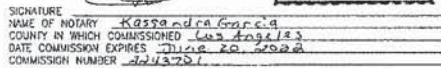 SIGNATURE
NAME OF NOTARY Kassandra Garcia
COUNTY IN WHICH COMMISSIONED Los Angeles
DATE COMMISSION EXPIRES June 20, 2022
COMMISSION NUMBER 2243701